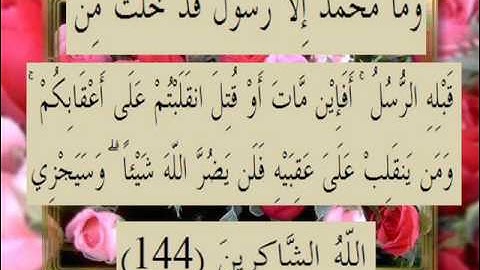 وَمَا مُحَمَّدٌ إِلَّا رَسُولٌ قَدْ خَلَتْ مِن
قَبْلِهِ الرُّسُلُ ۚ أَفَإِيْن مَّاتَ أَوْ قُتِلَ انقَلَبْتُمْ عَلَى أَعْقَابِكُمْ ۚ
وَمَن يَنقَلِبْ عَلَىَ عَقِبَيْهِ فَلَن يَضُرَّ اللّهَ شَيْئاً ۗ وَسَيَجْزِي
اللّهُ الشَّاكِرِينَ (144)